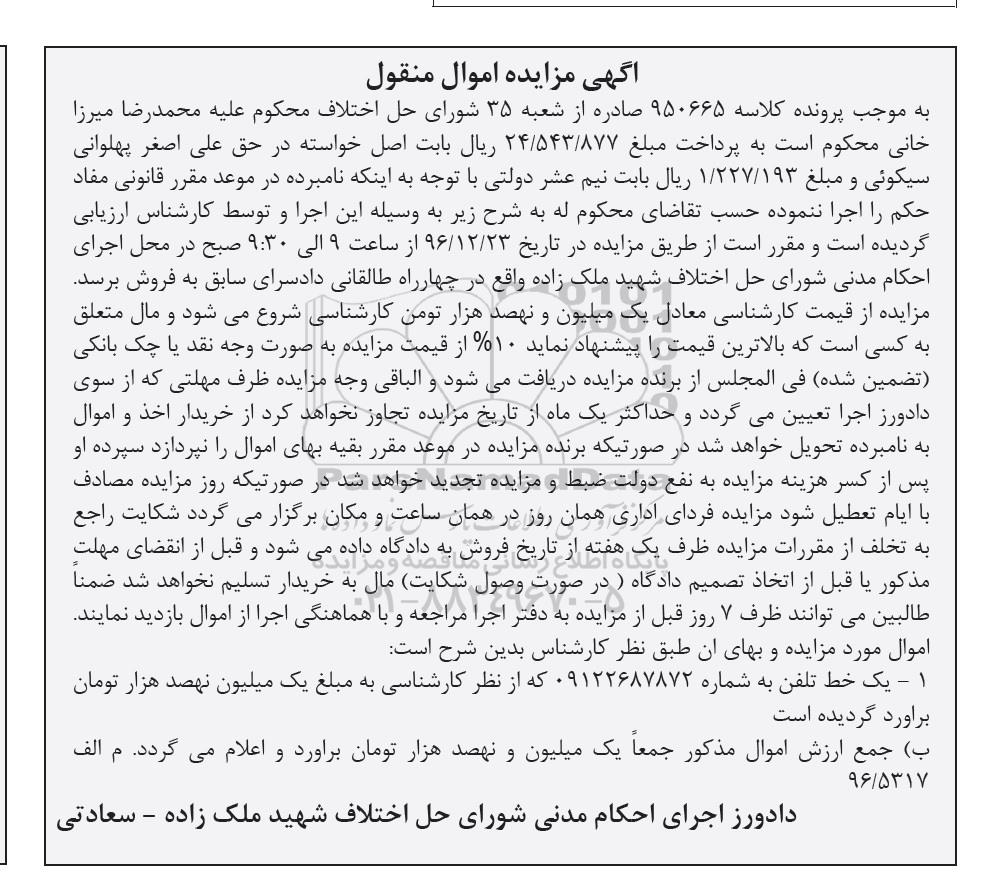 اگهی مزایده اموال منقول
به موجب پرونده کلاسه ۹۵۰۶۶۵ صادره از شعبه ۳۵ شورای حل اختلاف محکوم علیه محمدرضا میرزا
خانی محکوم است به پرداخت مبلغ ۲۴/۵۴۳/۸۷۷ ریال بابت اصل خواسته در حق علی اصغر پهلوانی
سیکوئی و مبلغ ۱/۲۲۷/۱۹۳ ریال بابت نیم عشر دولتی با توجه به اینکه نامبرده در موعد مقرر قانونی مفاد
حکم را اجرا ننموده حسب تقاضای محکوم له به شرح زیر به وسیله این اجرا و توسط کارشناس ارزیابی
گردیده است و مقرر است از طریق مزایده در تاریخ ۹۶/۱۲/۲۳ از ساعت ۹ الی ۹:۳۰ صبح در محل اجرای
احکام مدنی شورای حل اختلاف شهید ملک زاده واقع در چهارراه طالقانی دادسرای سابق به فروش برسد.
مزایده از قیمت کارشناسی معادل یک میلیون و نهصد هزار تومن کارشناسی شروع می شود و مال متعلق
به کسی است که بالاترین قیمت را پیشنهاد نماید ۱۰% از قیمت مزایده به صورت وجه نقد یا چک بانکی
(تضمین شده) فی المجلس از برنده مزایده دریافت می شود و الباقی وجه مزایده ظرف مهلتی که از سوی
دادورز اجرا تعیین می گردد و حداکثر یک ماه از تاریخ مزایده تجاوز نخواهد کرد از خریدار اخذ و اموال
به نامبرده تحویل خواهد شد در صورتیکه برنده مزایده در موعد مقرر بقیه بهای اموال را نپردازد سپرده او
پس از کسر هزینه مزایده به نفع دولت ضبط و مزایده تجدید خواهد شد در صورتیکه روز مزایده مصادف
با ایام تعطیل شود مزایده فردای اداری همان روز در همان ساعت و مکان برگزار می گردد شکایت راجع
به تخلف از مقررات مزایده ظرف یک هفته از تاریخ فروش به دادگاه داده می شود و قبل از انقضای مهلت
مذکور یا قبل از اتخاذ تصمیم دادگاه ( در صورت وصول شکایت) مال به خریدار تسلیم نخواهد شد ضمناً
طالبین می توانند ظرف ۷ روز قبل از مزایده به دفتر اجرا مراجعه و با هماهنگی اجرا از اموال بازدید نمایند.
اموال مورد مزایده و بهای ان طبق نظر کارشناس بدین شرح است:
۱ – یک خط تلفن به شماره ۰۹۱۲۲۶۸۷۸۷۲ که از نظر کارشناسی به مبلغ یک میلیون نهصد هزار تومان
براورد گردیده است
ب) جمع ارزش اموال مذکور جمعاً یک میلیون و نهصد هزار تومان براورد و اعلام می گردد. م الف
۹۶/۵۳۱۷
دادورز اجرای احکام مدنی شورای حل اختلاف شهید ملک زاده – سعادتی
ParsNamadData
پایگاه اطلاع رسانی مناقصه و مزایده
۰۲۱–۸۸۳۴۹۶۷۰–۵